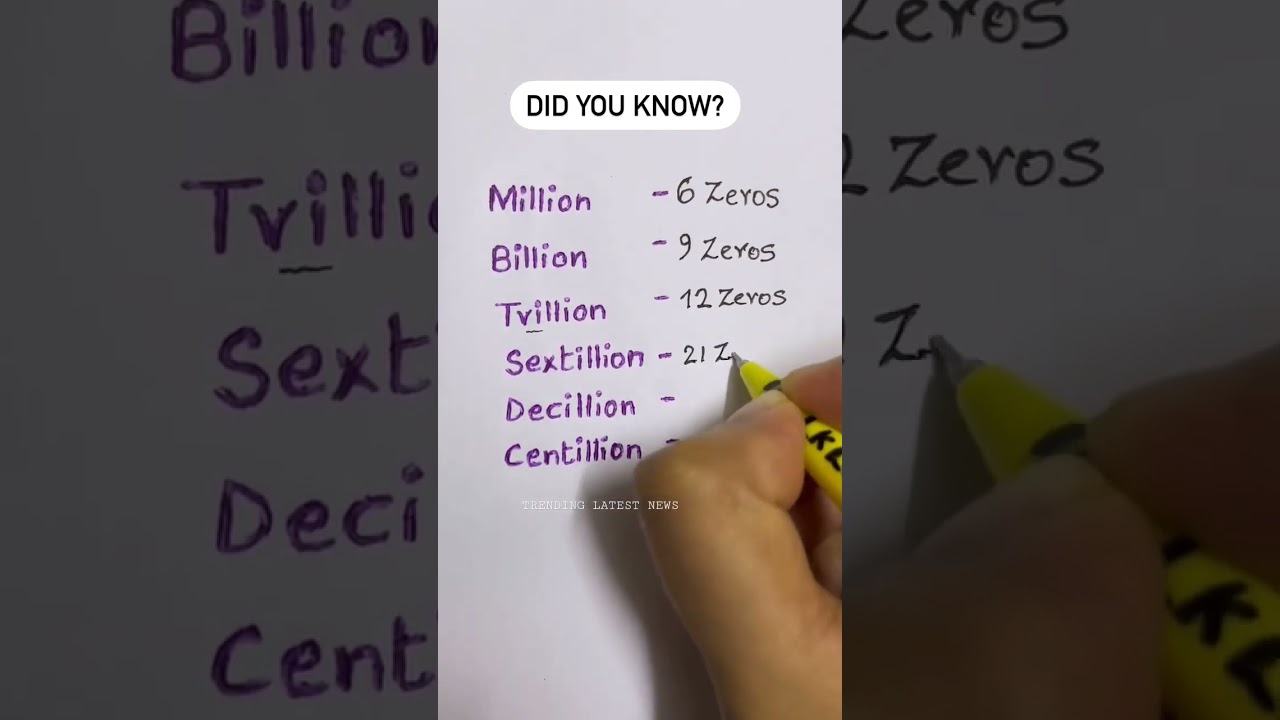 DID YOU KNOW?
Million - 6 Zeros
Billion - 9 Zeros
Trillion - 12 Zeros
Sextillion - 21 Z
Decillion -
Centillion -
TRENDING LATEST NEWS